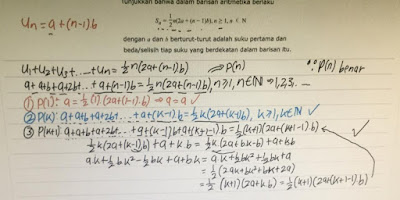 Tunjukkan bahwa dalam barisan aritmetika berlaku
Un = a + (n-1)b
Sn = 1/2 n(2a + (n - 1)b), n ≥ 1, n ∈ N
dengan a dan b berturut-turut adalah suku pertama dan
beda/selisih tiap suku yang berdekatan dalam barisan itu.
U1+U2+U3+...+Un = 1/2 n(2a+(n-1)b) → P(n) ∴ P(n) benar
a+a+b+a+2b+...+a+(n-1)b = 1/2 n(2a+(n-1)b), n≥1, n∈N → 1,2,3,...
① P(1): a = 1/2 (1) (2a+(1-1)b) → a = a ✓
② P(k): a+a+b+a+2b+...+a+(k-1)b = 1/2 k(2a+(k-1)b), k≥1, k∈N ✓
③ P(k+1): a+a+b+a+2b+...+a+(k-1)b+a+(k+1-1)b = 1/2 (k+1)(2a+(k+1-1)b)
1/2 k(2a+(k-1)b) + a+kb = 1/2 k(2a+bk-b)+a+kb
ak + 1/2 bk² - 1/2 bk + a + bk = ak + 1/2 bk² + 1/2 bk + a
= 1/2 (2ak + bk² + bk + 2a)
= 1/2 (k+1)(2a+kb) = 1/2 (k+1)(2a+(k+1-1)b)